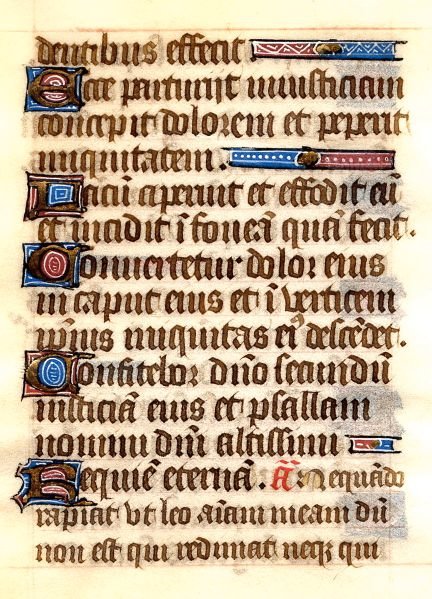 dentibus effecit
Ecce parturijt iniusticiam
concepit dolorem et peperit
iniquitatem.
Lacum aperuit et effodit eū
et incidit ī foueā quā fecit.
Conuertetur dolor eius
in caput eius et ī verticem
ip̄ius iniquitas ei⁹ descēdet.
Confitebor dn̄o secundū
iusticiā eius et psallam
nomini dn̄i altissimi
Requiē eternā. A᷒ Nequādo
rapiat vt leo aīam meam dū
non est qui redimat neqȝ qui